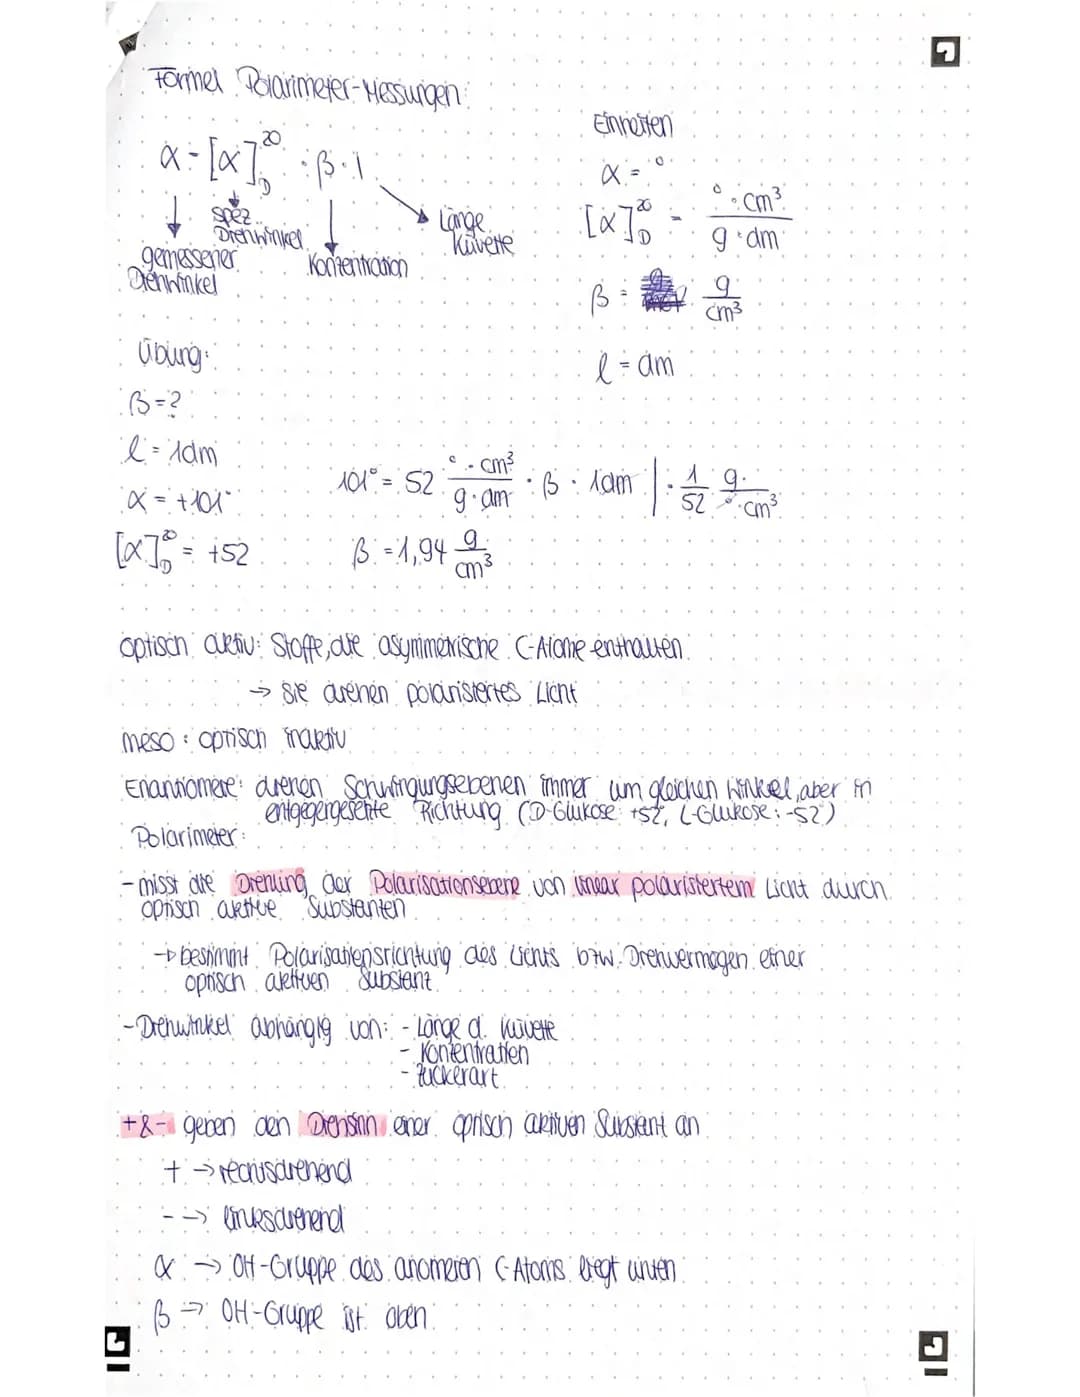 Formel Polarimeter-Messungen
α = [α]²⁰_D · β · l
gemessener Drehwinkel
spez. Drehwinkel
Konzentration
Länge Küvette
Einheiten
α = °
[α]²⁰_D = (° · cm³) / (g · dm)
β = g / cm³
l = dm
Übung:
β = ?
l = 1dm
α = +101°
[α]²⁰_D = +52
101° = 52 (° · cm³) / (g · dm) · β · 1dm | · 1/52 g / (° · cm³)
β = 1,94 g / cm³
optisch aktiv: Stoffe, die asymmetrische C-Atome enthalten
→ sie drehen polarisiertes Licht
meso: optisch inaktiv
Enantiomere: drehen Schwingungsebenen immer um gleichen Winkel, aber in
entgegengesetzte Richtung (D-Glukose: +52, L-Glukose: -52)
Polarimeter:
- misst die Drehung der Polarisationsebene von linear polarisiertem Licht durch
optisch aktive Substanzen
→ bestimmt Polarisationsrichtung des Lichts bzw. Drehvermögen einer
optisch aktiven Substanz
- Drehwinkel abhängig von: - Länge d. Küvette
- Konzentration
- Zuckerart
+ & - geben den Drehsinn einer optisch aktiven Substanz an
+ → rechtsdrehend
- → linksdrehend
α → OH-Gruppe des anomeren C-Atoms liegt unten
β → OH-Gruppe ist oben